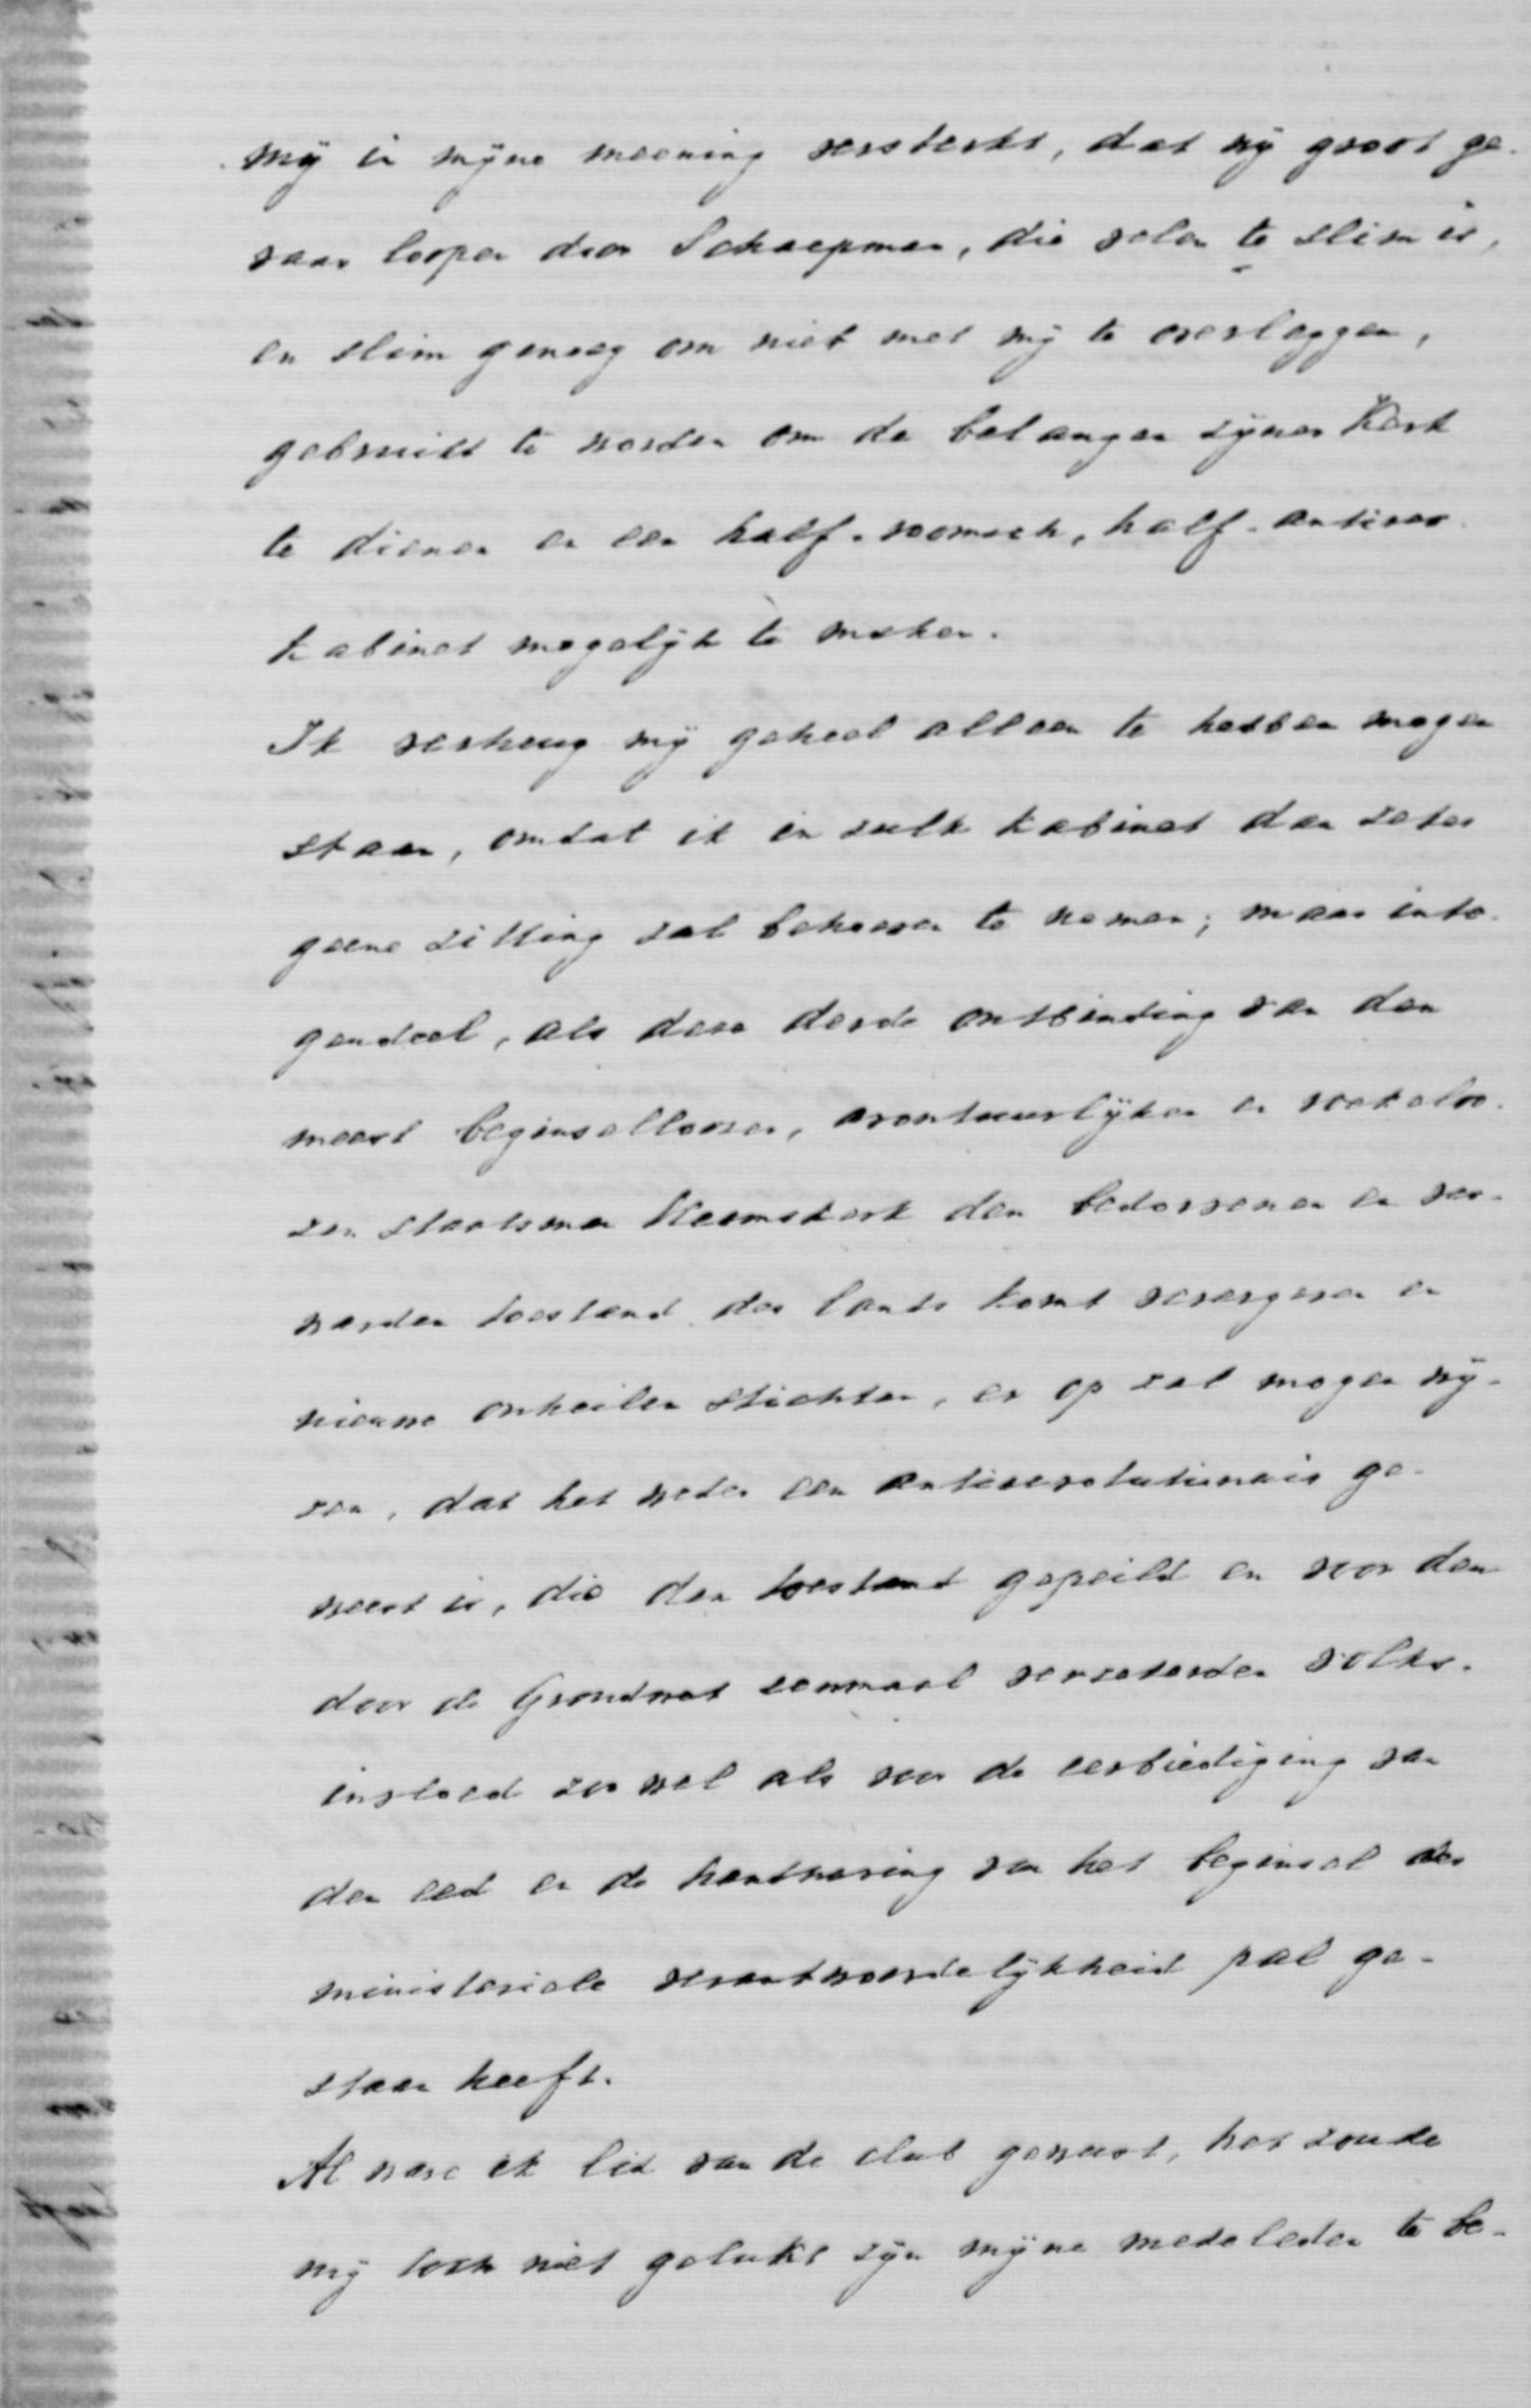 mij in mijne meening versterkt, dat wij groot ge-
vaar loopen door Schaepman, die velen te slim is,
en slim genoeg om niet met mij te overleggen,
gebruikt te worden om de belangen zijner Kerk
te dienen en een half-roomsch, half-antirev.
kabinet mogelijk te maken.
Ik verheug mij geheel alleen te hebben mogen
staan, omdat ik in zulk kabinet dan zeker
geene zitting zal behoeven te nemen; maar inte-
gendeel, als deze derde ontbinding van den
meest beginselloozen, avontuurlijken en roekeloo-
zen staatsman Heemskerk den bedorvenen en ver-
warden toestand des lands komt verergeren en
nieuwe onheilen stichten, er op zal mogen wij-
zen, dat het weder een antirevolutionair ge-
weest is, die den toestand gepeild en voor den
door de Grondwet eenmaal verzekerden volks-
invloed zoo wel als voor de eerbiediging van
den eed en de handhaving van het beginsel der
ministeriele verantwoordelijkheid pal ge-
staan heeft.
Al ware ik lid van de club geweest, het zoude
mij toch niet gelukt zijn mijne medeleden te be-